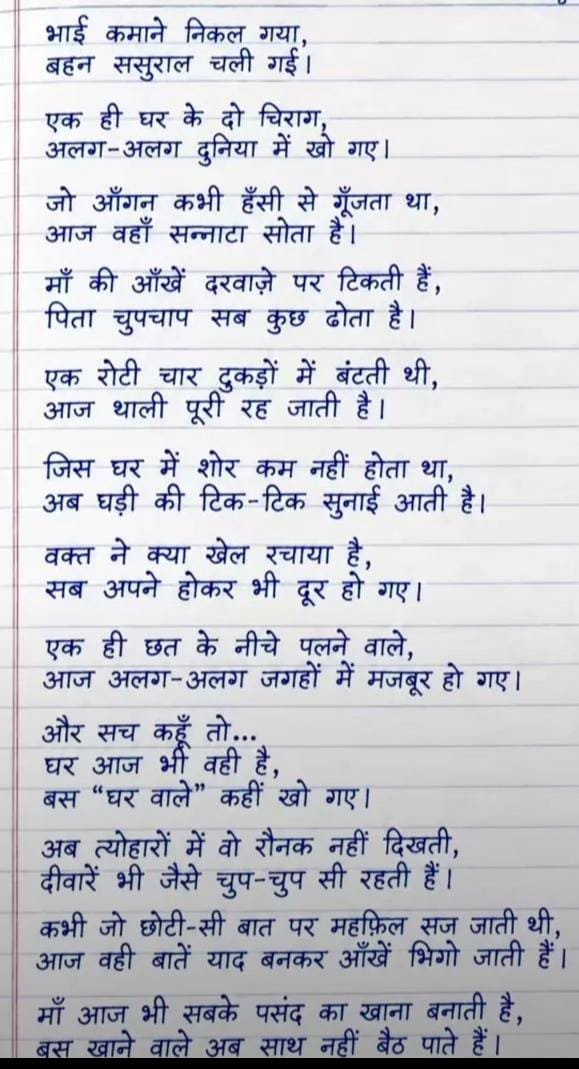 भाई कमाने निकल गया,
बहन ससुराल चली गई।
एक ही घर के दो चिराग,
अलग-अलग दुनिया में खो गए।
जो आँगन कभी हँसी से गूँजता था,
आज वहाँ सन्नाटा सोता है।
माँ की आँखें दरवाज़े पर टिकती हैं,
पिता चुपचाप सब कुछ ढोता है।
एक रोटी चार टुकड़ों में बंटती थी,
आज थाली पूरी रह जाती है।
जिस घर में शोर कम नहीं होता था,
अब घड़ी की टिक-टिक सुनाई आती है।
वक्त ने क्या खेल रचाया है,
सब अपने होकर भी दूर हो गए।
एक ही छत के नीचे पलने वाले,
आज अलग-अलग जगहों में मजबूर हो गए।
और सच कहूँ तो...
घर आज भी वही है,
बस “घर वाले” कहीं खो गए।
अब त्योहारों में वो रौनक नहीं दिखती,
दीवारें भी जैसे चुप-चुप सी रहती हैं।
कभी जो छोटी-सी बात पर महफ़िल सज जाती थी,
आज वही बातें याद बनकर आँखें भिगो जाती हैं।
माँ आज भी सबके पसंद का खाना बनाती है,
बस खाने वाले अब साथ नहीं बैठ पाते हैं।